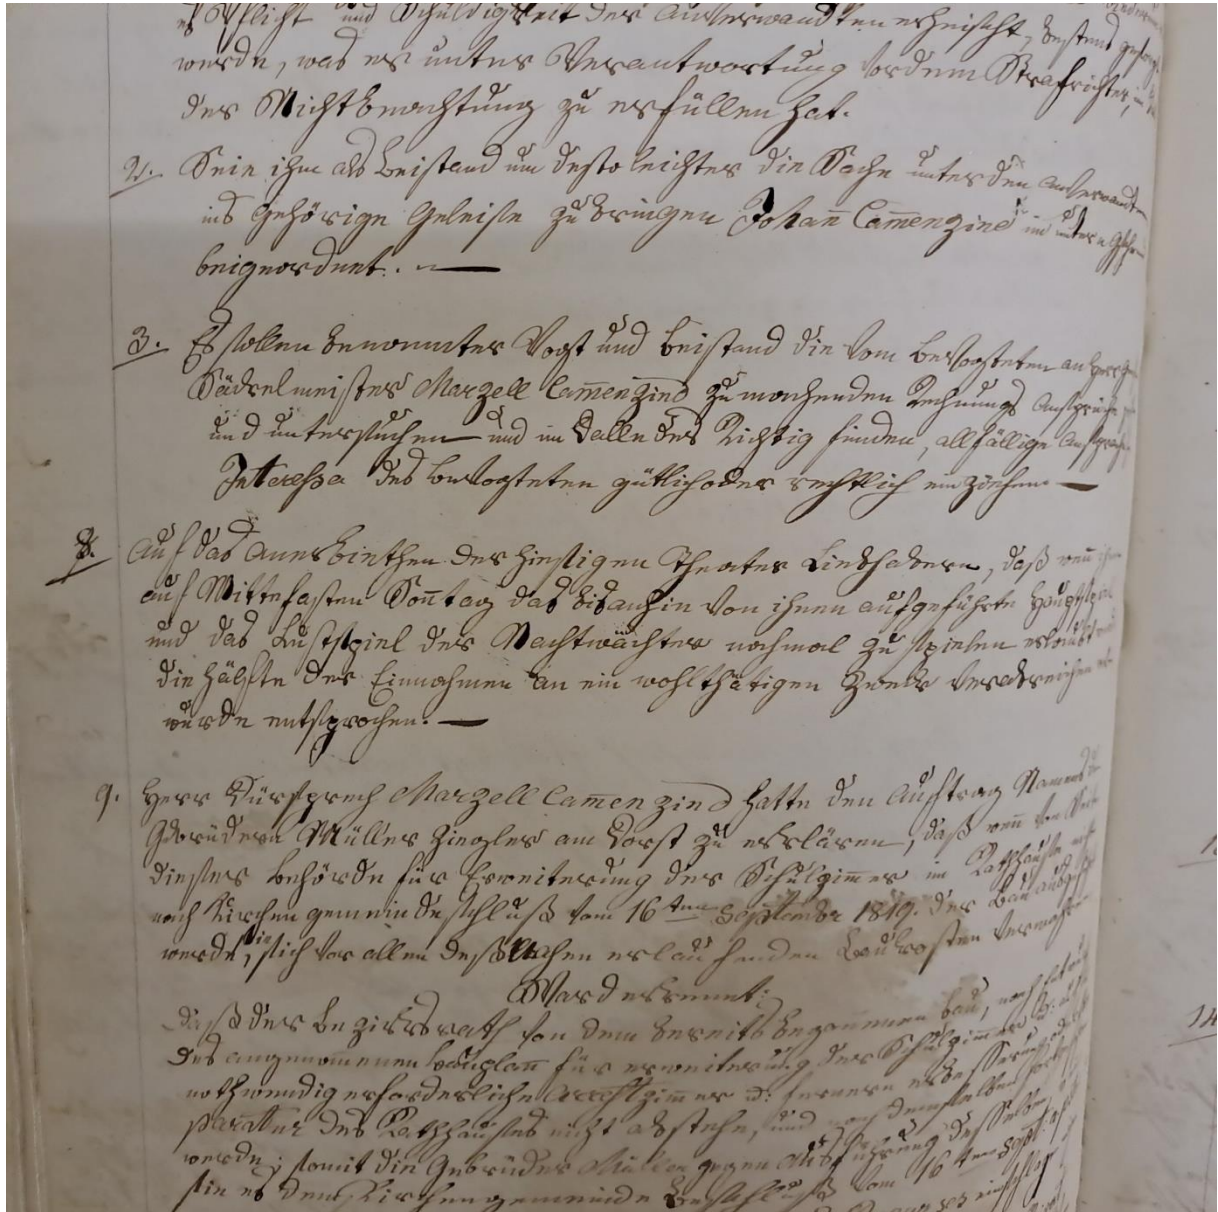 es Pflicht und Schuldigkeit der Anverwandten erheischt, bestens gesorgt
werde, was er unter Verantwortung vor dem Strafrichter, im
der Nichtbeachtung zu erfüllen hat.
2. Seie ihm als Beistand um desto leichter die Sache unter den Anverwandten
ins gehörige Geleise zu bringen Johan̅ Cam̅enzind im untern
beigeordnet. —
3. Es sollen benannter Vogt und Beistand die vom Bevogteten an Herr
Säckelmeister Marzell Cam̅enzind zu machenden Rechnungs Ansprüche
und untersuchen und im Falle des Richtig finden, allfällige Ansprachen
Interesse des Bevogteten gütlich oder rechtlich einziehen —
8. Auf das Anerbiethen der hiesigen Theater Liebhabern, daß wen̅ ihnen
auf Mittefasten Son̅tag das bis anhin von ihnen aufgeführte Hauptspiel
und das Lustspiel der Nachtwächter nochmal zu spielen erlaubt
die Hälfte der Einnahmen an ein wohlthätigen Zweck verabreichen
wurde entsprochen. —
9. Herr Fürsprech Marzell Cam̅enzind hatte den Auftrag Namens der
Gebrüdern Müller Ziegler am Dorf zu erklären, daß wen̅ von Seite
dieser Behörde für Erweiterung der Schulzim̅er im Rathhause
nach Kirchengemeindeschluß vom 16ten September 1819. der Bau
werde, sie sich vor allen deßnahen erlaufenden Baukosten
Ward erkennt:
Daß der Bezirksrath von dem bereits begonnenen Bau, nach
des angenommenen Bauplan̅ für Erweiterung der Schulzim̅er
nothwendig erforderliche zim̅er u: fernern
des Rathhauses nicht abstehe, und nach demselben
werde; somit die Gebrüder Müller gegen Ausführung desselben
sie es dem Kirchengemeinde Beschluß vom 16ten Sept: